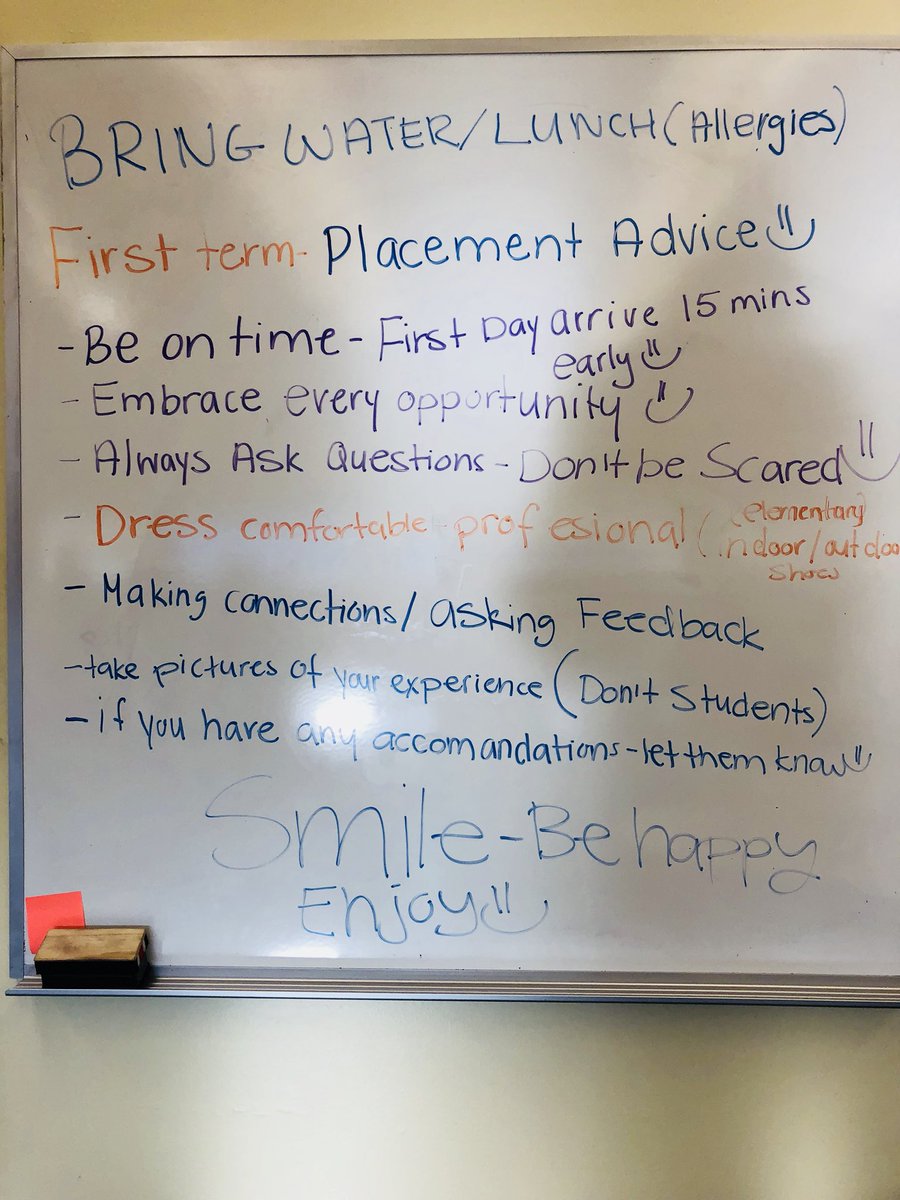 BRING WATER/LUNCH (Allergies)
First term - Placement Advice
- Be on time - First Day arrive 15 mins
early
- Embrace every opportunity
- Always Ask Questions - Don't be Scared
- Dress comfortable - profesional (elementary)
(indoor/outdoo
shoes
- Making connections/asking Feedback
- take pictures of your experience (Don't Students)
- if you have any accomandations - let them know
Smile - Be happy
Enjoy